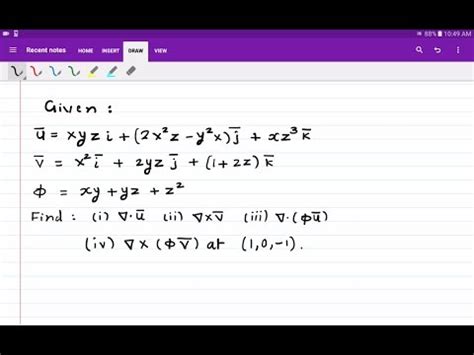 88% 10:49 AM
Recent notes HOME INSERT DRAW VIEW
Given :
u̅ = xyz i + (2x²z − y²x) j̅ + xz³ k̅
v̅ = x² i̅ + 2yz j̅ + (1+2z) k̅
ϕ = xy + yz + z²
Find : (i) ∇·u̅ (ii) ∇×v̅ (iii) ∇·(ϕu̅)
(iv) ∇×(ϕv̅) at (1,0,-1).